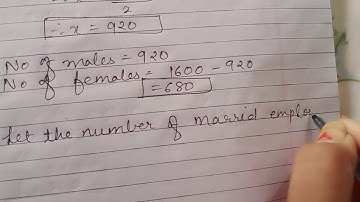 2
∴ x = 920
No of males = 920
No of females = 1600 - 920
= 680
Let the number of married emplo